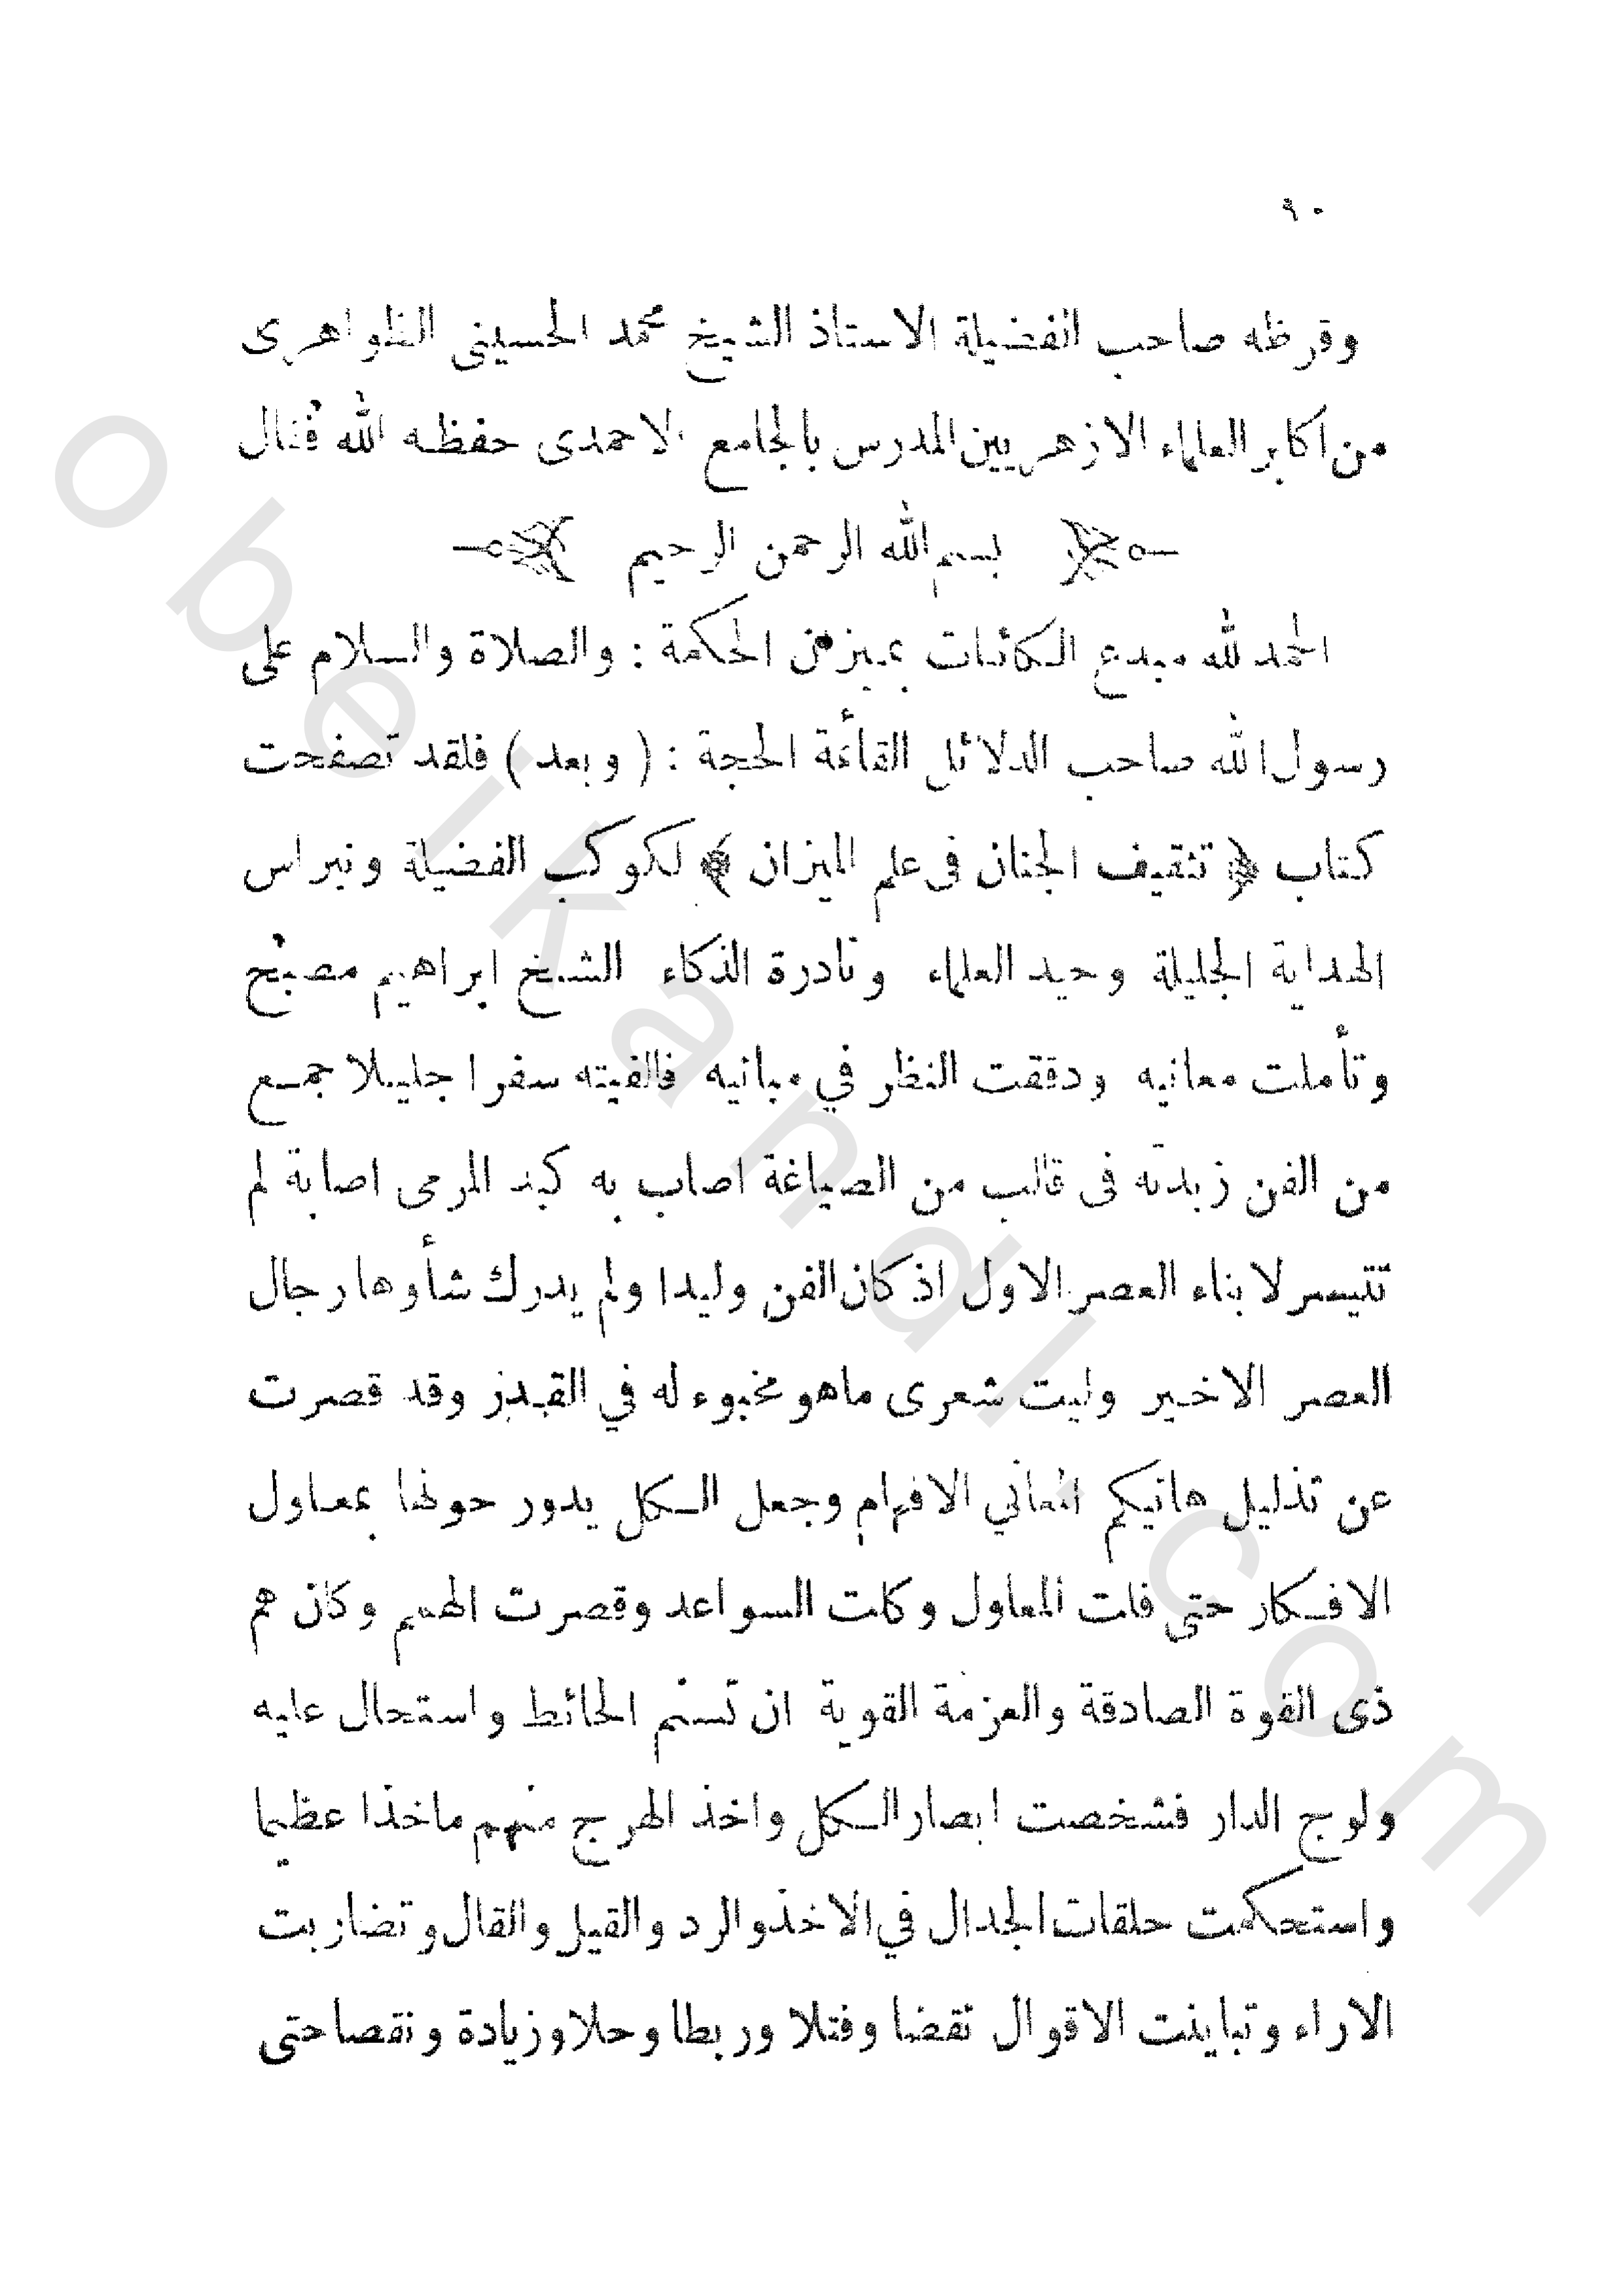 ٩٠
وقرظه صاحب الفضيلة الاستاذ الشيخ محمد الحسينى الظواهرى
من اكابر العلماء الازهريين المدرس بالجامع الاحمدى حفظه الله فقال
بسم الله الرحمن الرحيم
الحمد لله مبدع الكائنات بميزان الحكمة : والصلاة والسلام على
رسول الله صاحب الدلائل القائمة الحجة : ( وبعد ) فلقد تصفحت
كتاب ﴿ تثقيف الجنان فى علم الميزان ﴾ لكوكب الفضيلة ونبراس
الهداية الجليلة وحيد العلماء ونادرة الذكاء الشيخ ابراهيم مصبح
وتأملت معانيه ودققت النظر في مبانيه فالفيته سفرا جليلا جمع
من الفن زبدته فى قالب من الصياغة اصاب به كبد المرمى اصابة لم
تتيسر لابناء العصر الاول اذ كان الفن وليدا ولم يدرك شأوها رجال
العصر الاخير وليت شعرى ماهو مخبوء له في القبدز وقد قصرت
عن تذليل هاتيكم المعاني الافهام وجعل الكل يدور حولها بمعاول
الافكار حتى فلت المعاول وكلت السواعد وقصرت الهمم وكان هم
ذى القوة الصادقة والعزمة القوية ان تسنم الحائط واستحال عليه
ولوج الدار فشخصت ابصار الكل واخذ الهرج منهم ماخذا عظيما
واستحكمت حلقات الجدال في الاخذ والرد والقيل والقال وتضاربت
الاراء وتباينت الاقوال نقضا وفتلا وربطا وحلا وزيادة ونقصا حتى
obeikandl.com